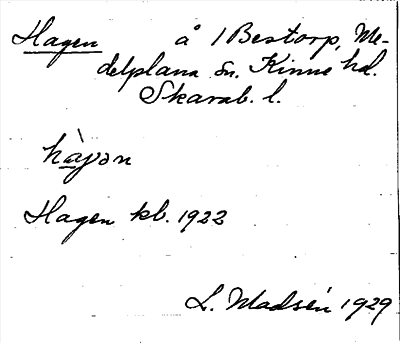 Hagen å 1 Bestorp, Me-
delplana sn. Kinne hd.
Skarab. l.
hàgən
Hagen kb. 1922
L. Madsén 1929